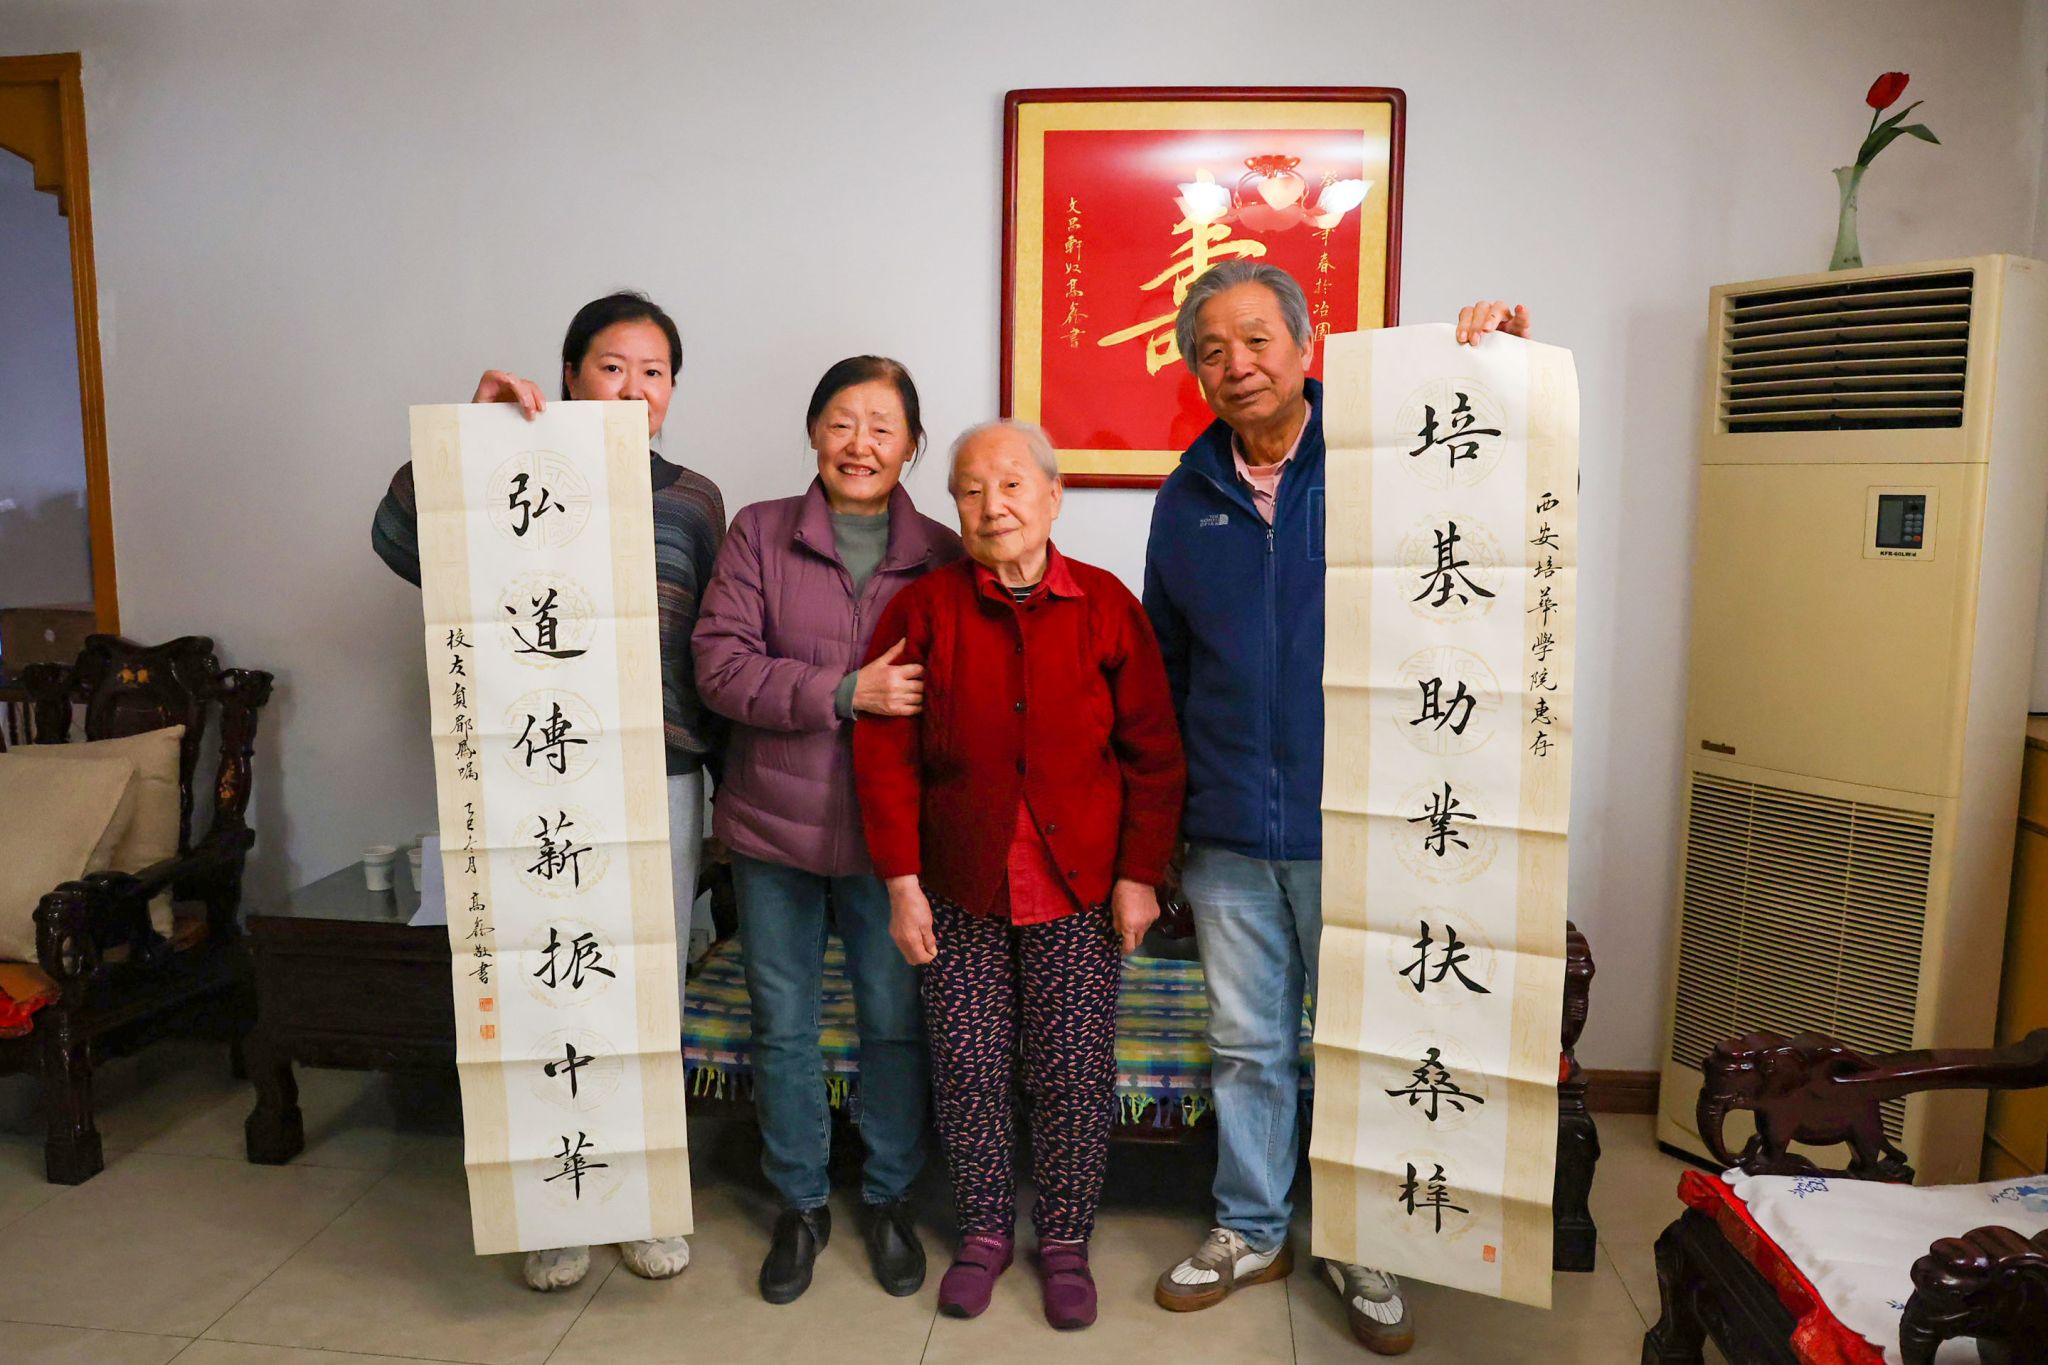 培基助業扶桑梓
西安培華學院惠存
弘道傳薪振中華
校友負鄏鳳囑 乙巳冬月 高鑫敬書
壽
年春於冶園
文昌軒以高鑫書
THE NORTH FACE
KFR-60LW/d
FASHION